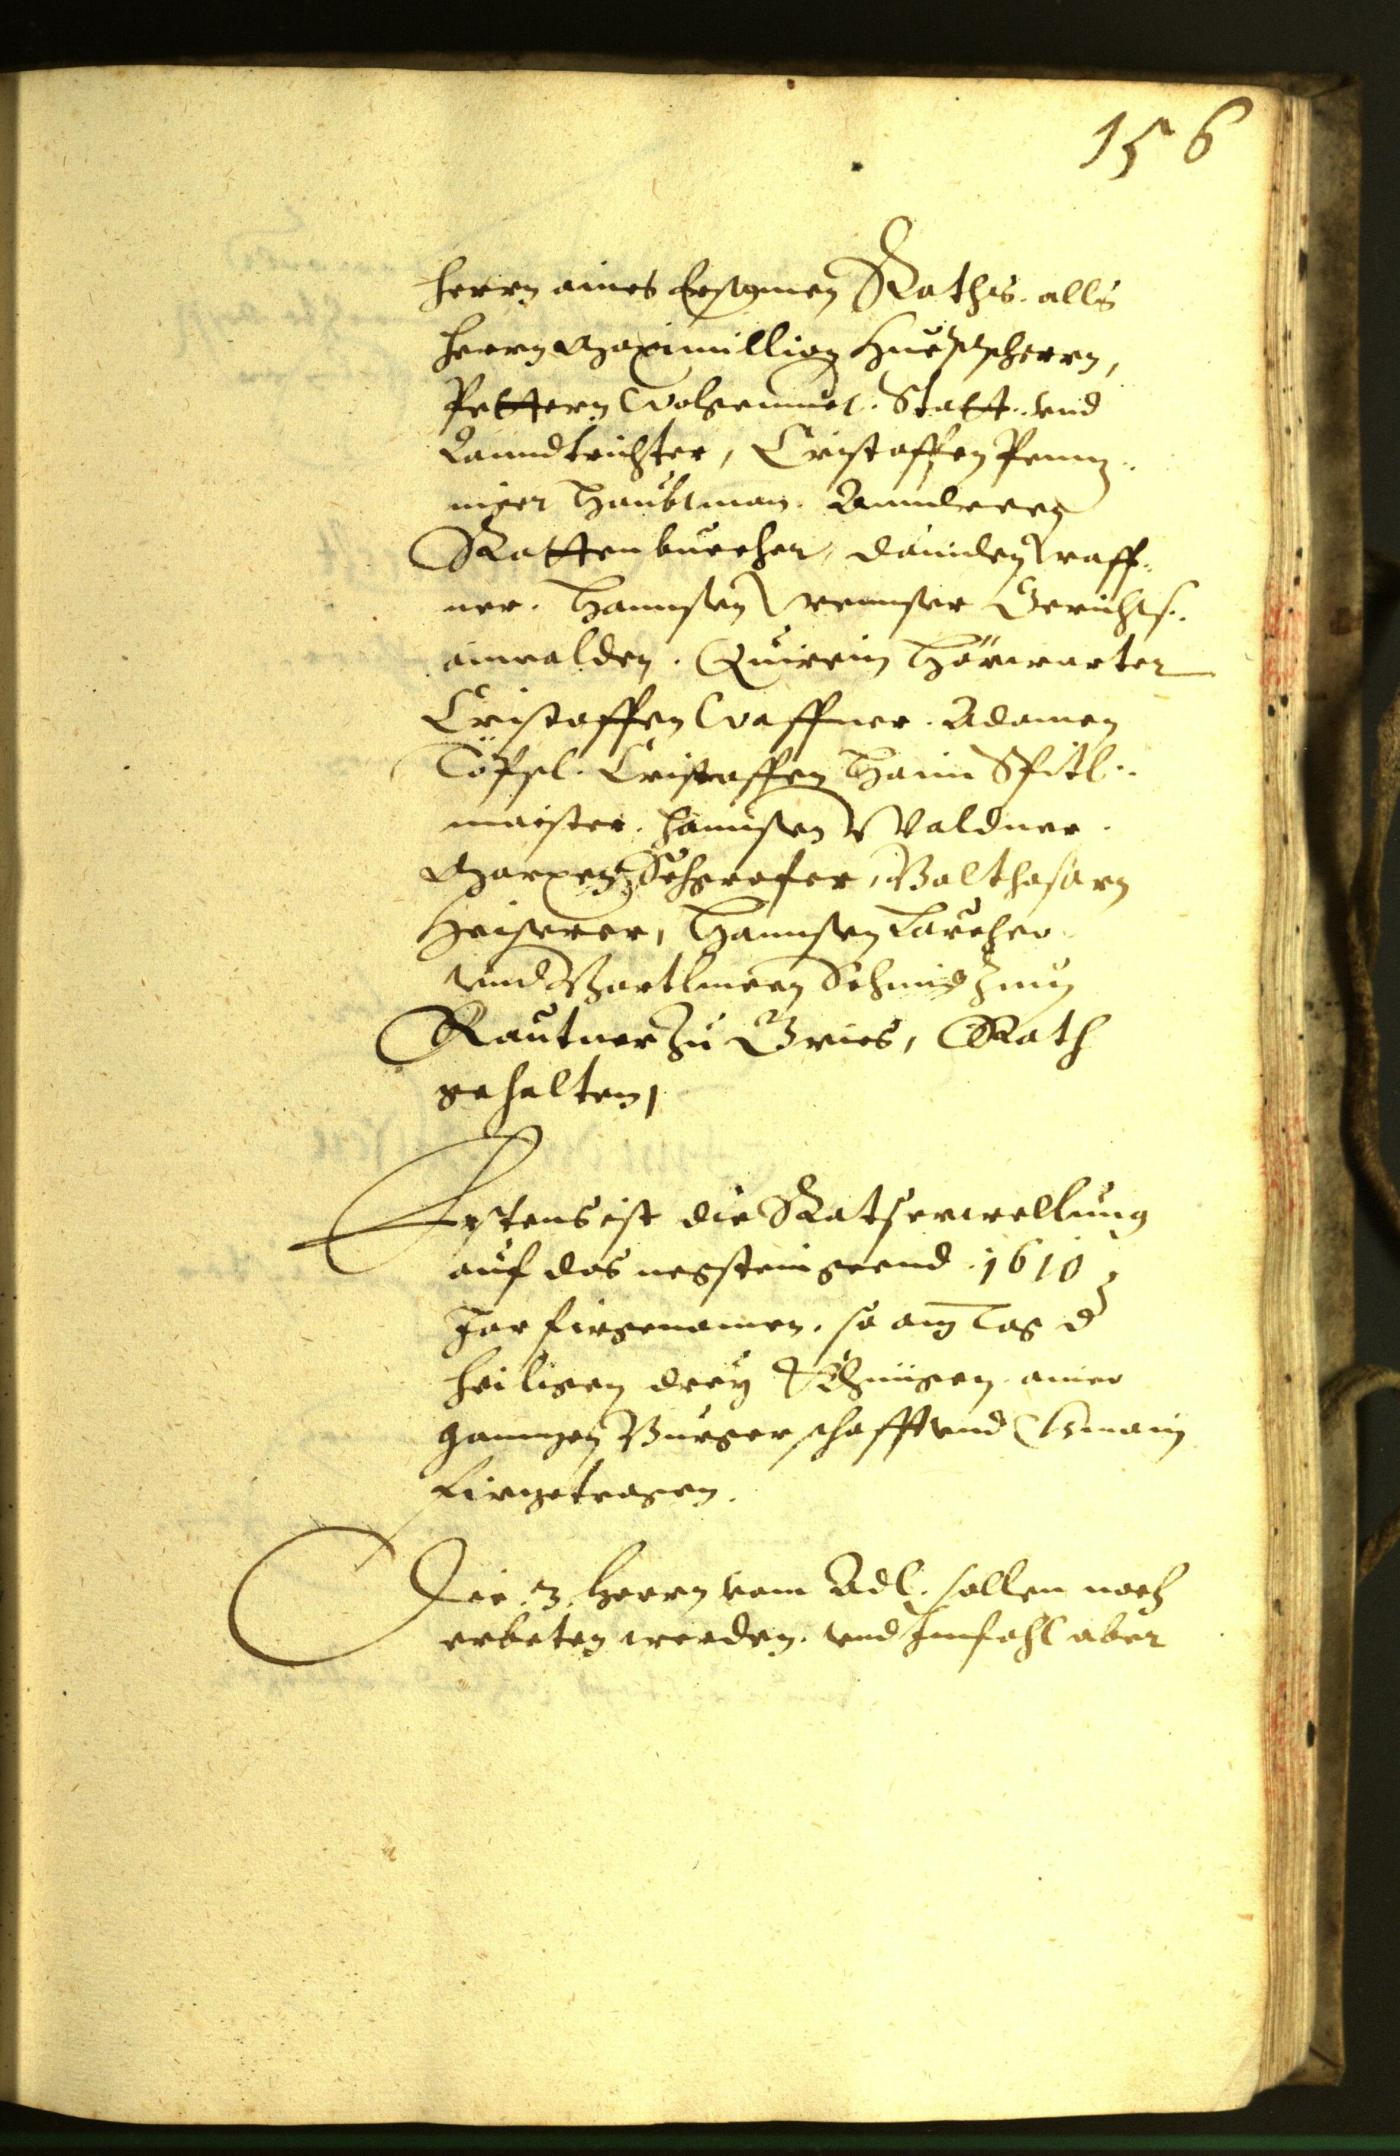 156
herrn aines Ersamen Rathes. alls
herrn Maximillion Hueb᷑scherrn,
Pettern Wolgemuet. Statt. vnd
Lanndtrichter, Cristoffen Penniz¬
niger Haubtman. Anndreen
Rattenbuecher, dauiden Straff¬
ner. Hannsen Prennser Gerichts¬
anwalden. Quirein Hörwarter
Cristoffen Waffner. Adamen
Töpsl. Cristoffen Hain Spitl¬
maister. Hannsen Waldner.
Marxen Schgrafer, Balthasarn
Heiserer, Hannsen Larcher
vnnd Bartlmeen Schmidt zum
Rautner zu Gries, Rath
gehalten,
Erstens ist die Ratserwellung
auf das negsteingeend 1610
Jar firgenomen. so am Tag der
heiligen drey Khünigen ainer
ganngen Burgerschafft vnd Gmain
firgetragen.
Die 3. herrn vom Adl. sollen noch
erbeten werden. vnd Imfahl aber